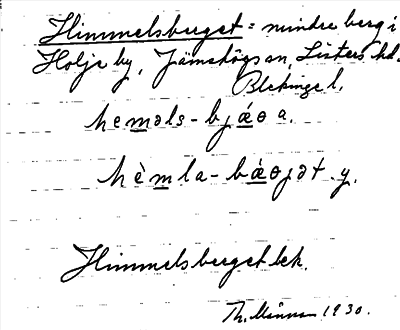 Himmelsberget = mindre berg i
Holje by, Jämshögs sn, Listers hd.
Blekinge l.
hemals-bjǽɵa.
hèmla-bǽɵjət.y.
Himmelsberget bek.
Th. 1930.